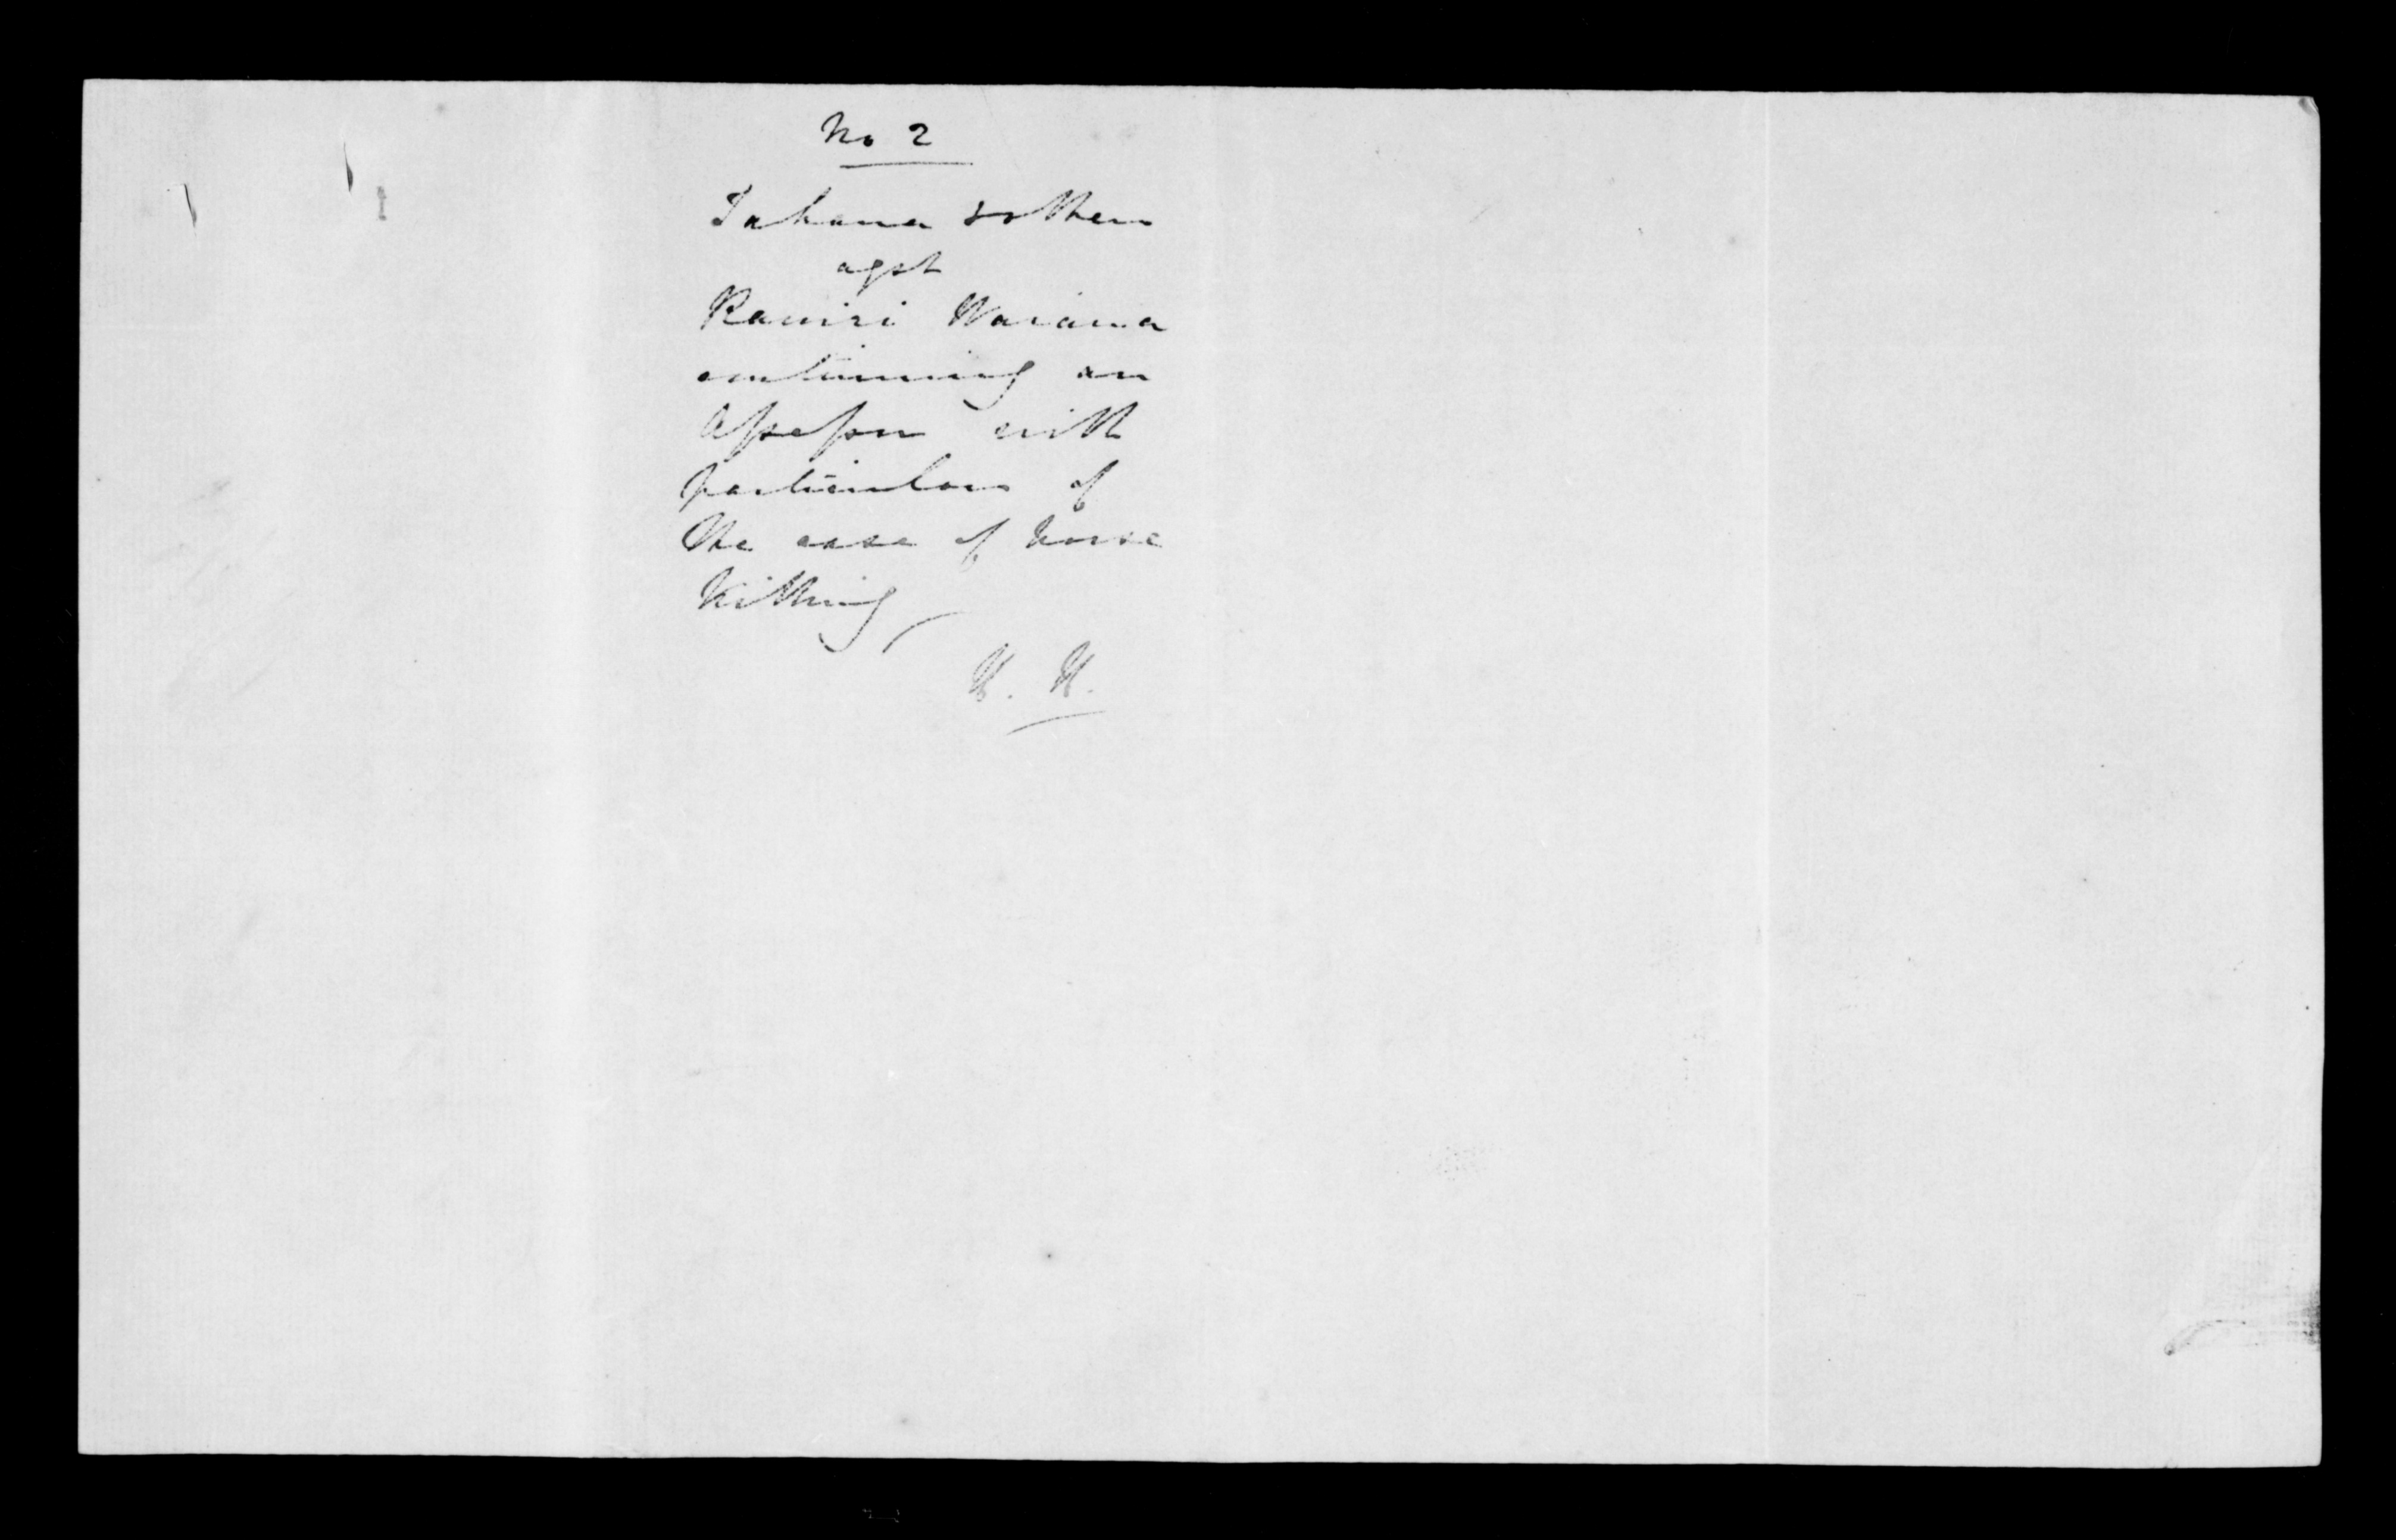 No 2
Tahana & others
agst
Rawiri Waiama
containing an
Assessor with
particulars of
the case of horse
killing
H. H.